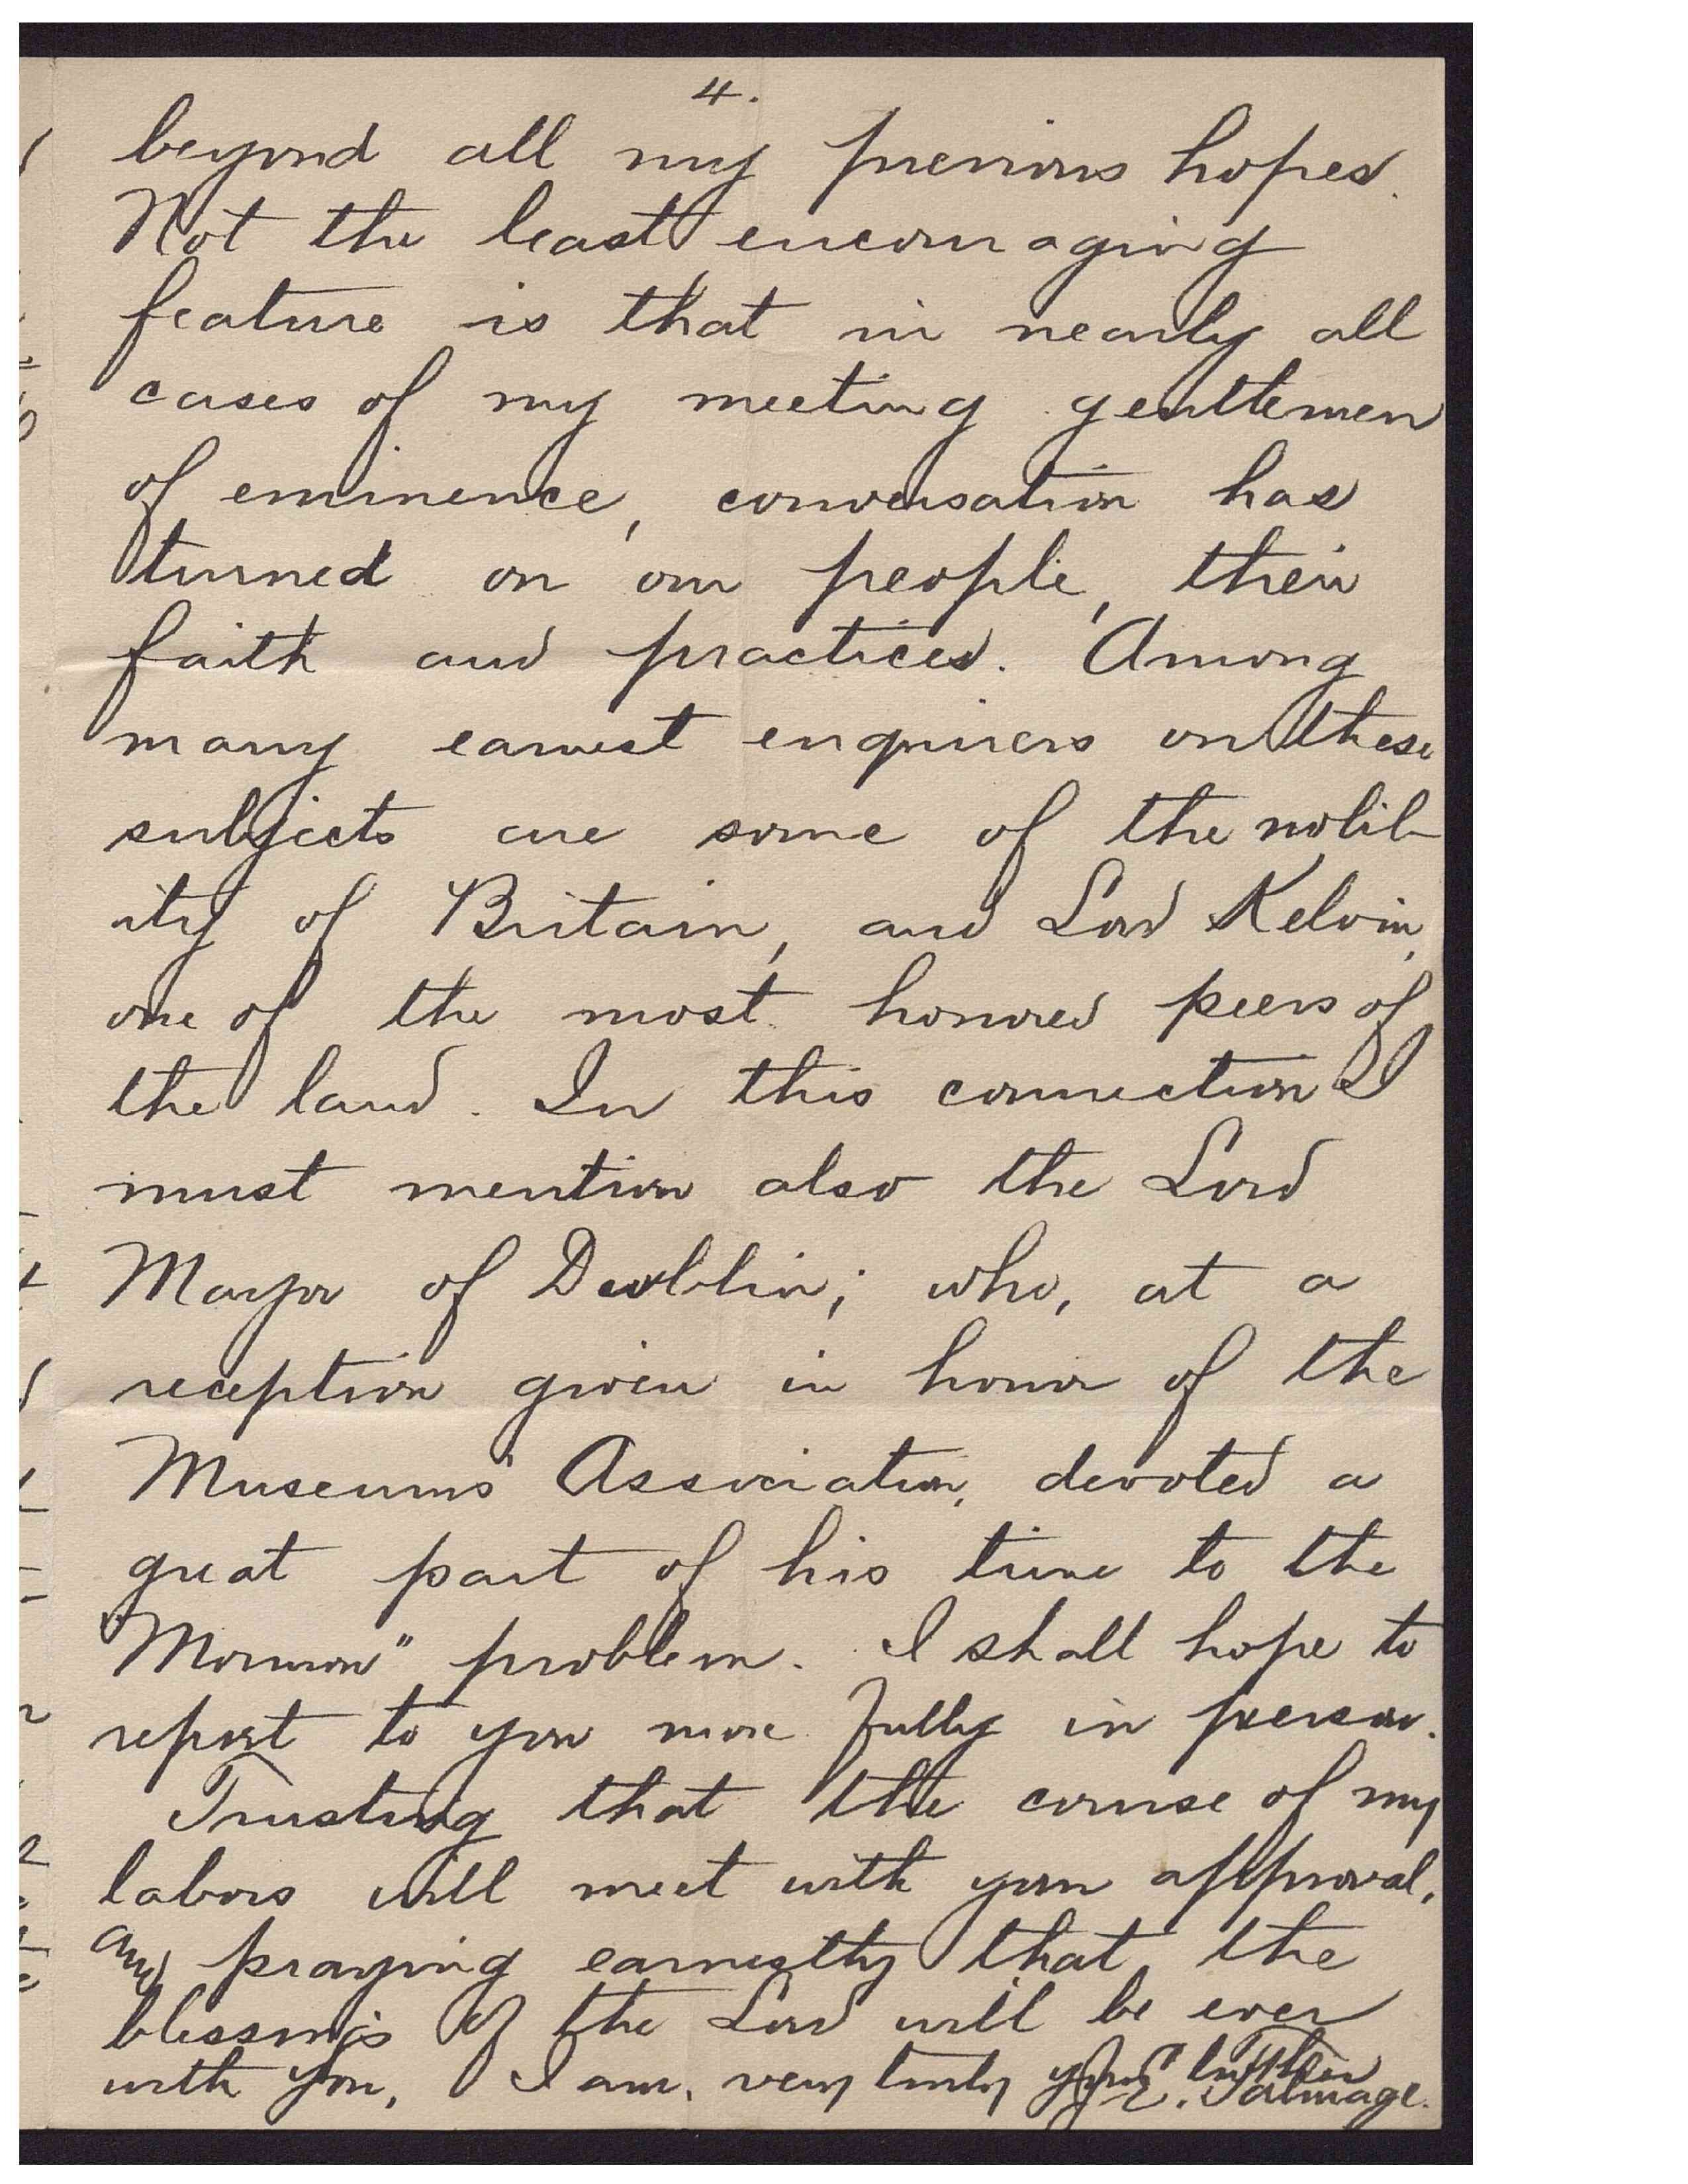 4.
beyond all my previous hopes.
Not the least encouraging
feature is that in nearly all
cases of my meeting gentlemen
of eminence, conversation has
turned on our people, their
faith and practices. Among
many earnest enquirers on these
subjects are some of the nobil-
ity of Britain, and Lord Kelvin,
one of the most honored peers of
the land. In this connection I
must mention also the Lord
Mayor of Dublin; who, at a
reception given in honor of the
Museums' Association, devoted a
great part of his time to the
"Mormon" problem. I shall hope to
report to you more fully in person.
Trusting that the course of my
labors will meet with your approval,
and praying earnestly that the
blessings of the Lord will be ever
with you, I am, very truly your brother
J. E. Talmage.